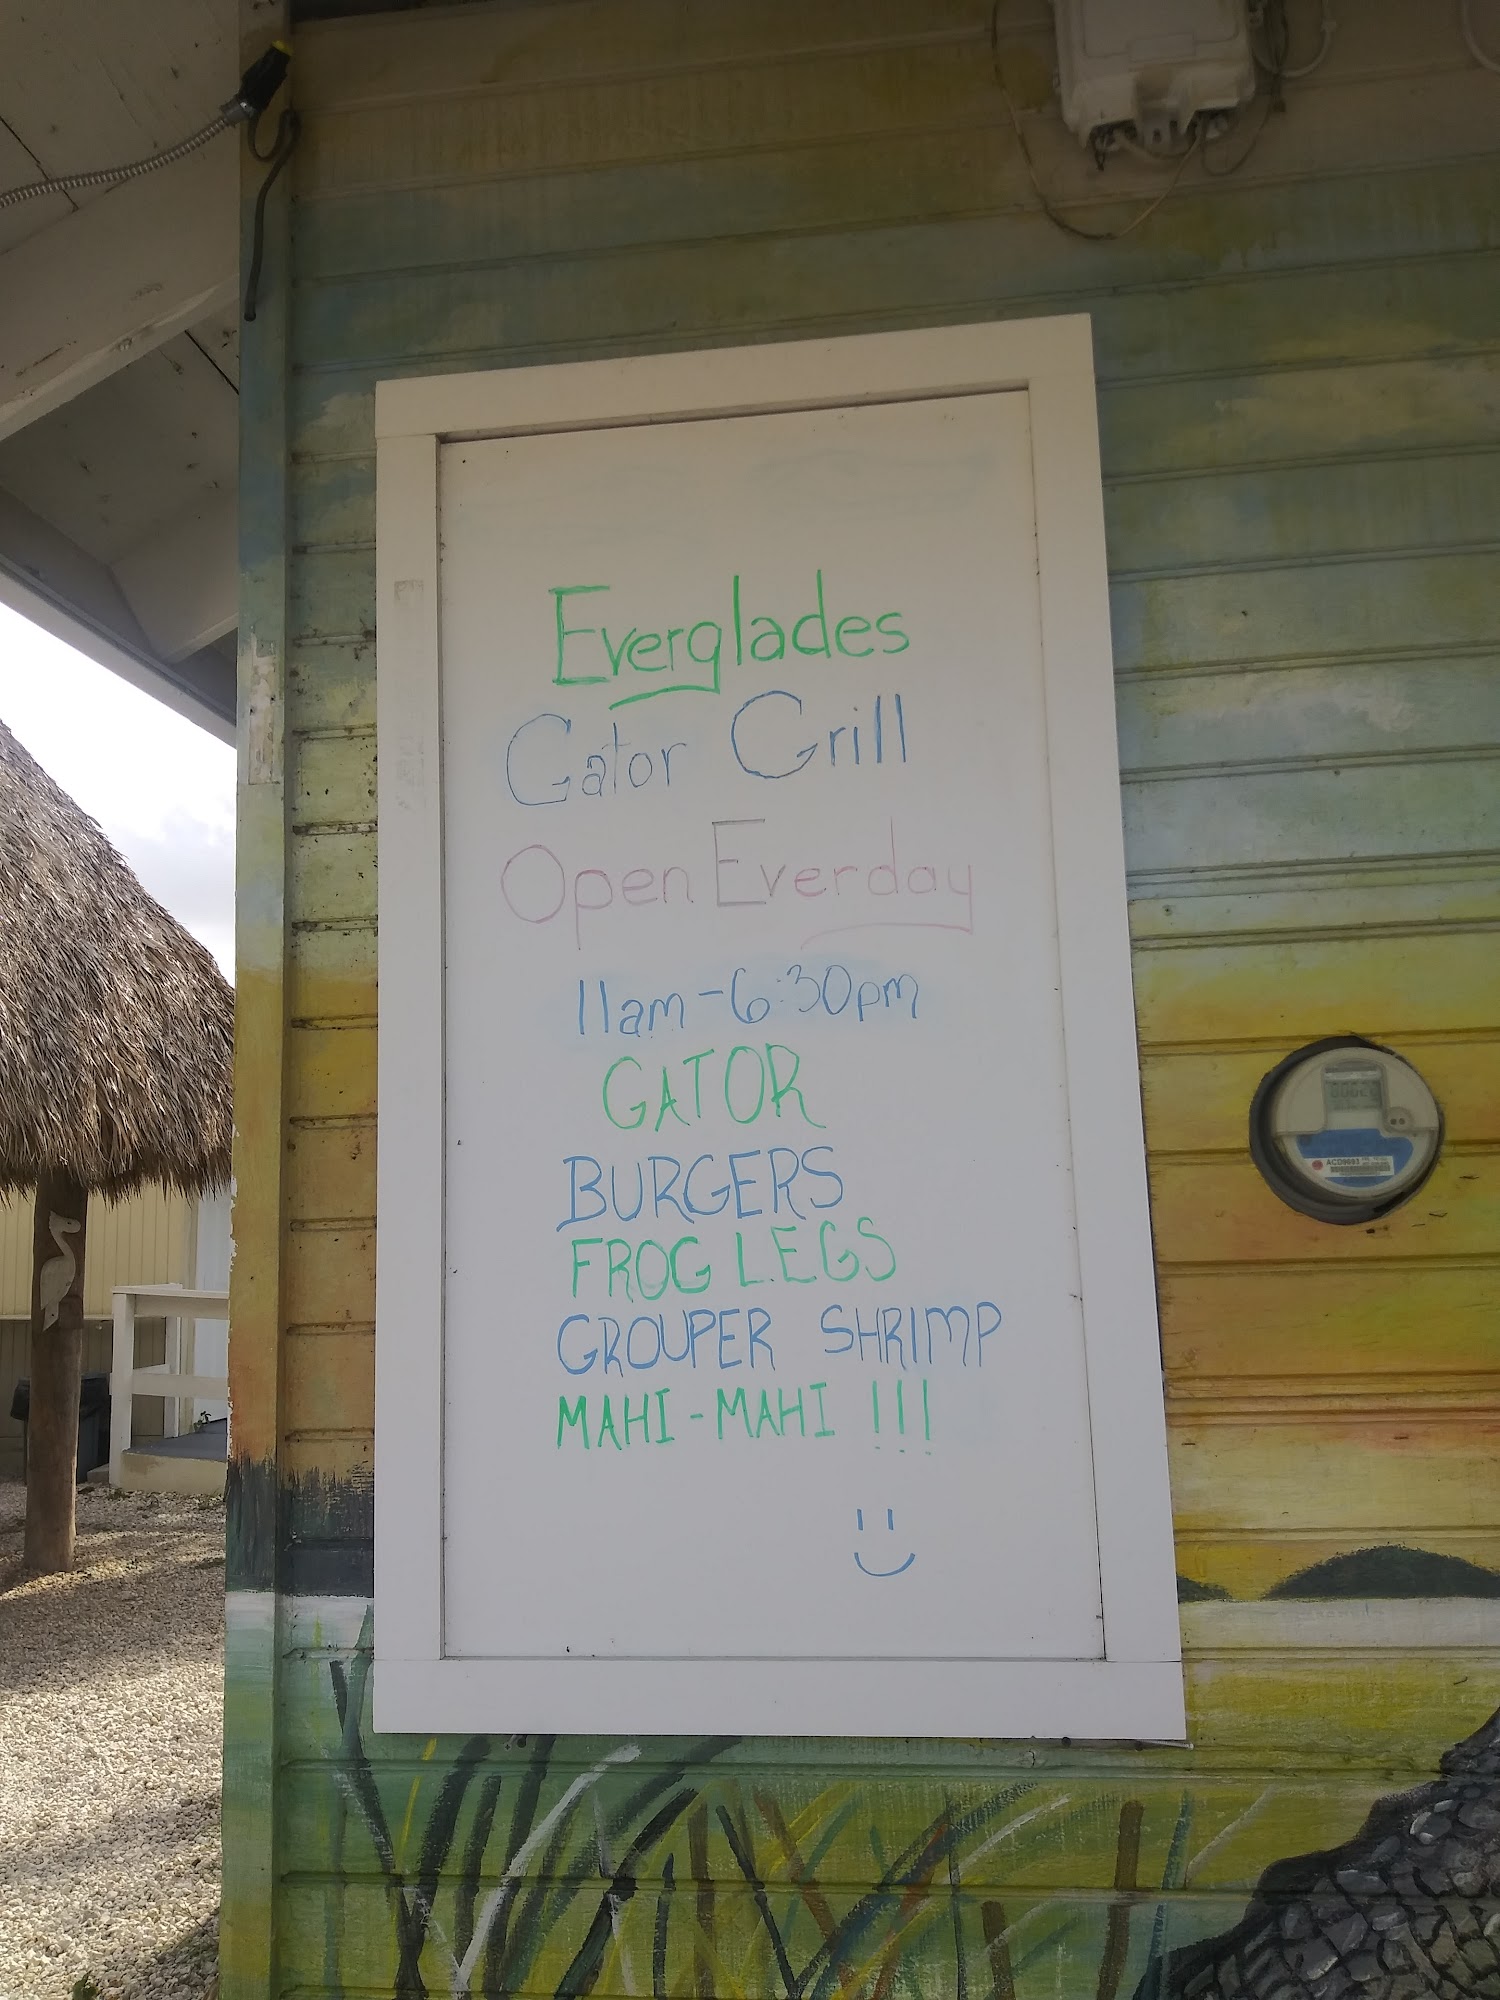 Everglades
Gator Grill
Open Everday
11am-6:30pm
GATOR
BURGERS
FROG LEGS
GROUPER SHRIMP
MAHI-MAHI !!!
ACD9693